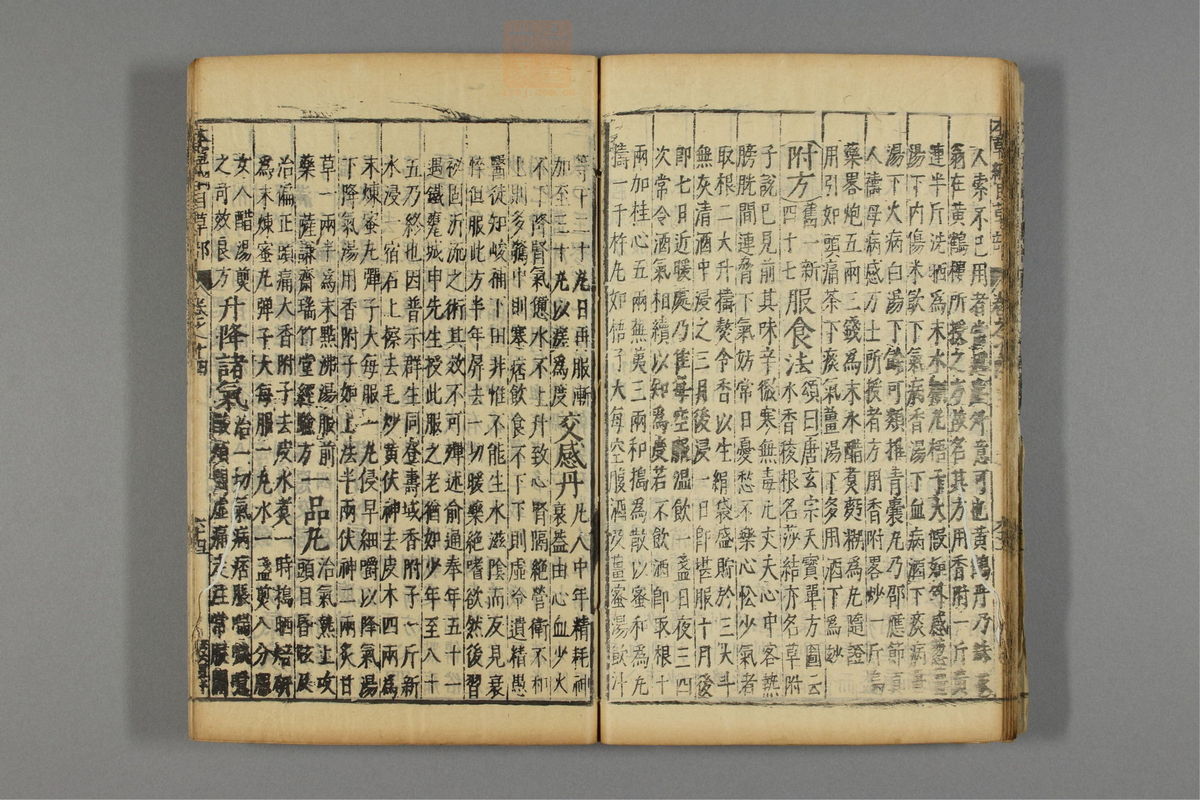 人索不已用者當盡意可也黃鶴丹乃
翁在黃鶴樓所授之方故名其方用香附一斤黃
連半斤洗晒為末水糊丸梧子大假如外感葱薑
湯下內傷米飲下氣病香湯下血病酒下痰病薑
湯下火病白湯下餘可類推青囊丸乃邵應節真
人禱母病感方士所授者方用香附畧炒一斤烏
藥畧炮五兩三錢為末水醋煮麪糊為丸隨證
用引如頭痛茶下痰氣薑湯下多用酒下為妙
附方舊四新十七服食法頌曰唐玄宗天寶單方圖云水香稜根名莎結亦名草附
子說已見前其味辛微寒無毒凡丈夫心中客熱
膀胱間連脅下氣妨常日憂愁不樂心忪少氣者
取根二大升擣熬令香以生絹袋盛貯於三大斗
無灰清酒中浸之三月後浸一日即堪服十月後
即七日近暖處乃佳每空腹溫飲一盞日夜三四
次常令酒氣相續以知為度若不飲酒即取根十
兩加桂心五兩蕪荑三兩和搗為散以蜜和為丸
擣一千杵丸如梧子大每空腹酒及薑蜜湯飲汁
等下二十丸日再服漸
加至三十丸以瘥為度 交感丹凡人中年精耗神衰蓋由心血少火
不下降腎氣憊水不上升致心腎隔絶營衛不和
上則多驚中則塞痞飲食不下下則虛冷遺精愚
醫徒知峻補下田非惟不能生水滋陰而反見衰
悴但服此方半年屏去一切暖藥絶嗜欲然後習
秘固泝流之術其效不可殫述俞通奉年五十一
遇鐵甕城申先生授此服之老猶如少年至八十
五乃終也因普示群生同登壽域香附子一斤新
水浸一宿石上擦去毛炒黃茯神去皮木四兩為
末煉蜜丸彈子大每服一丸侵早細嚼以降氣湯
下降氣湯用香附子如上法半兩茯神二兩炙甘
草一兩半為末點沸湯服前
藥 薩謙齋瑞竹堂經驗方 一品丸治氣熱上攻頭目昏眩及
治偏正頭痛大香附子去皮水煮一時搗晒焙研
為末煉蜜丸彈子大每服一丸水一盞煎八分服
女人醋湯煎
之奇效良方 升降諸氣治一切氣病痞脹喘噦噫酸煩悶虛痛走注常服開